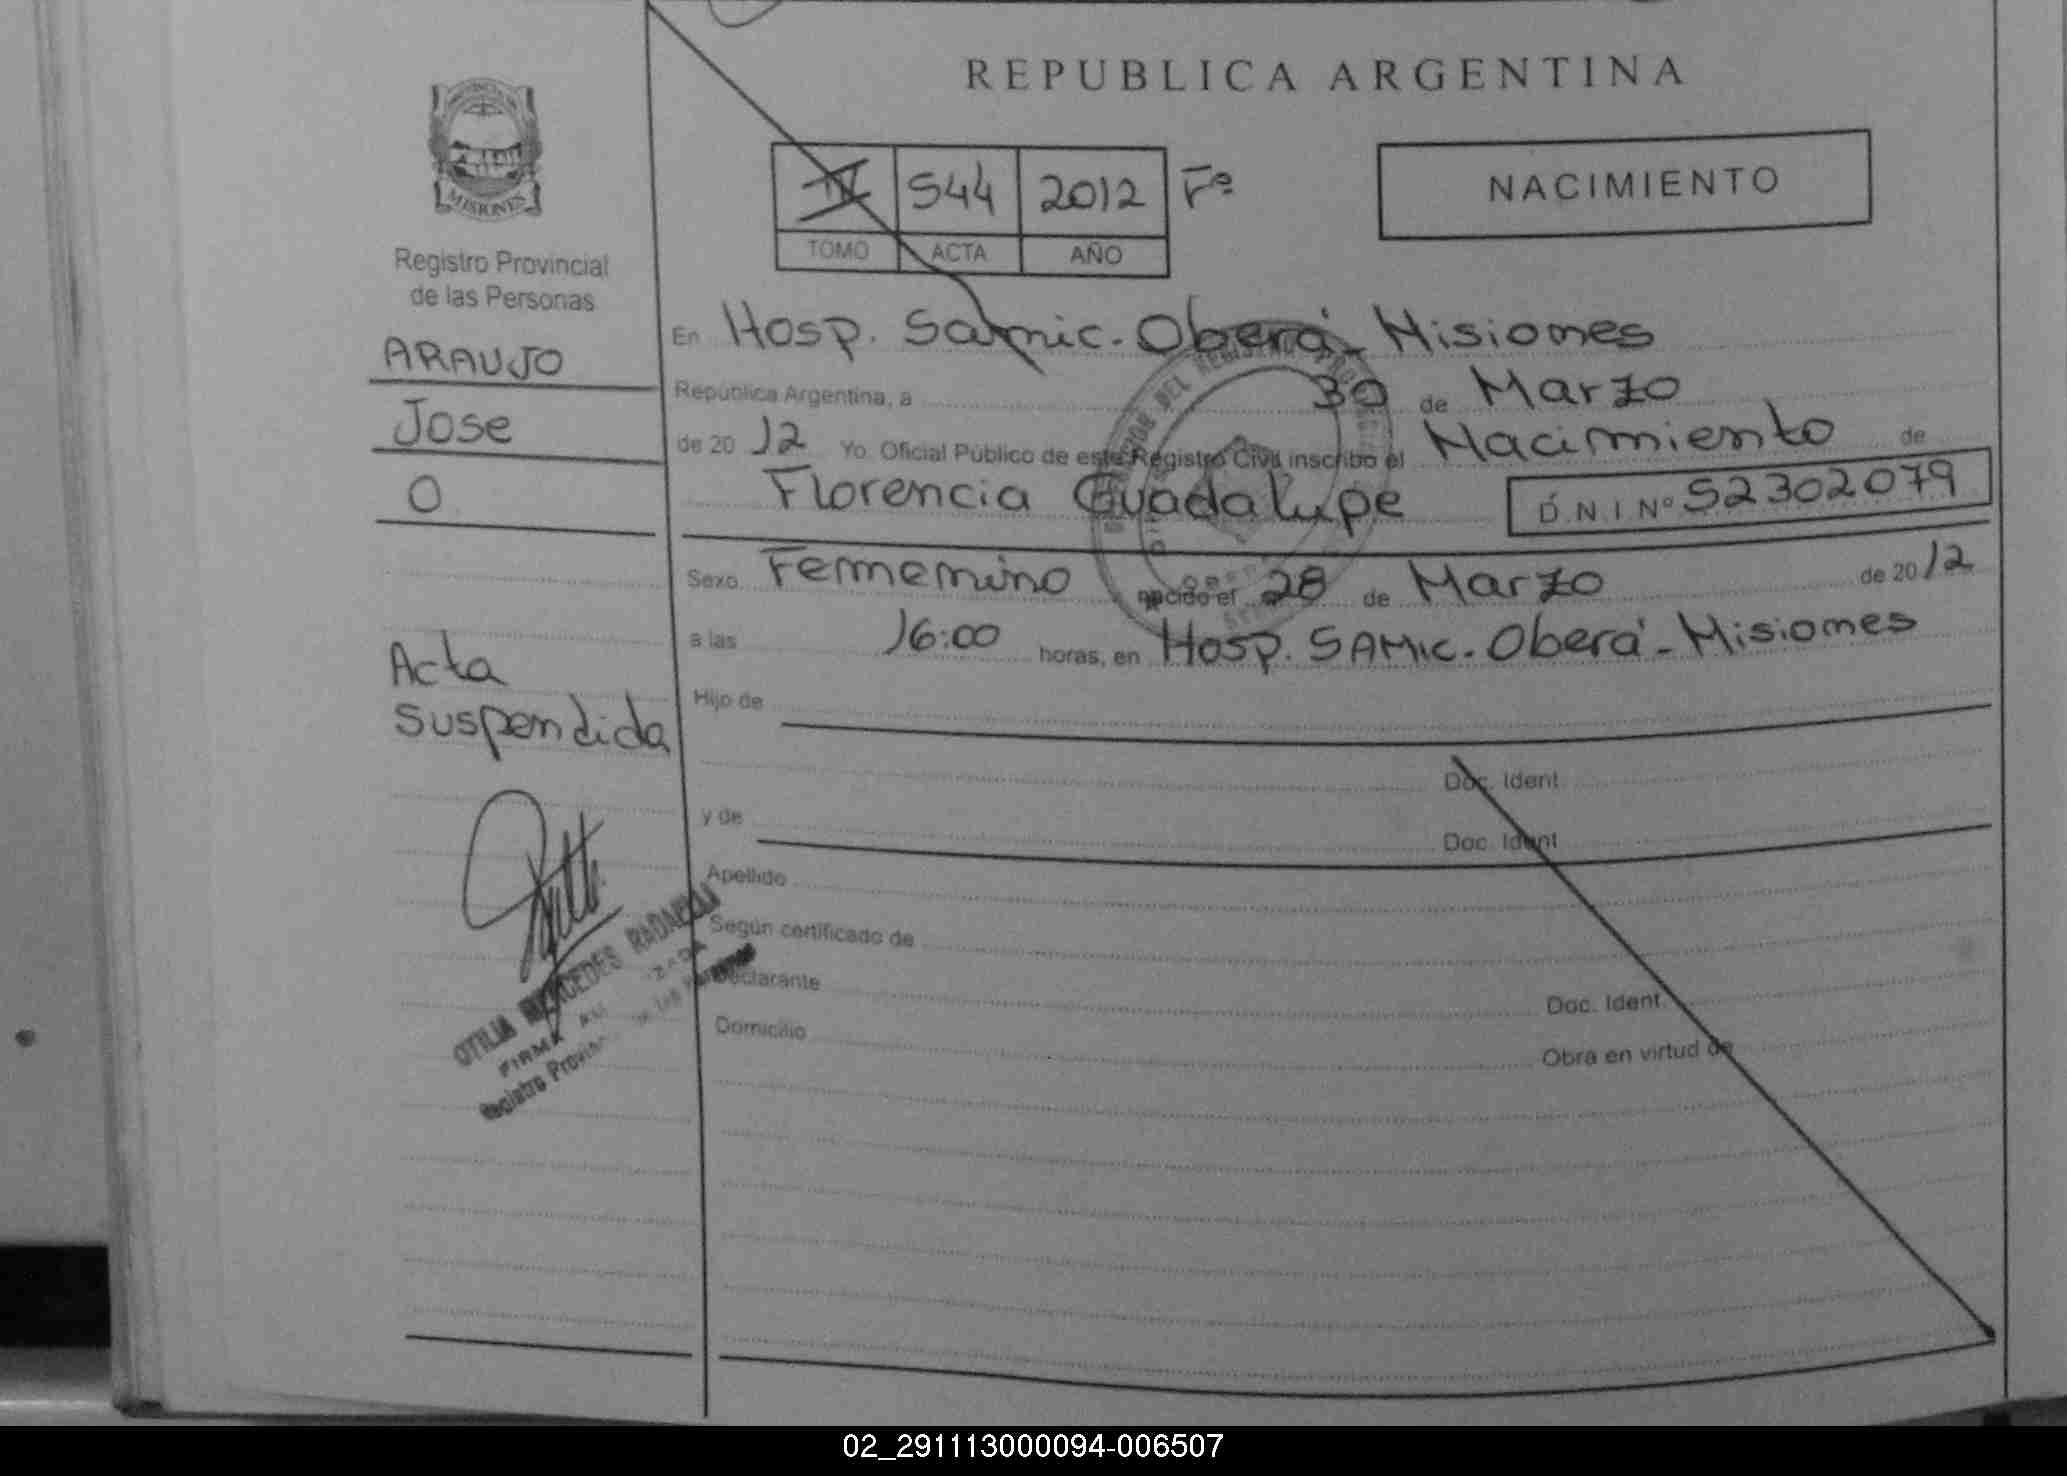 REPUBLICA ARGENTINA
544 2012 Fº
TOMO ACTA AÑO
NACIMIENTO
PROVINCIA DE
MISIONES
Registro Provincial
de las Personas
ARAUJO
Jose
O
Acta
suspendida
OTILIA MERCEDES
FIRMA
Registro
En Hosp. Samic. Oberá - Misiones
República Argentina, a 30 de Marzo
de 2012 Yo. Oficial Público de este Registro Civil inscribo el Nacimiento de
Florencia Guadalupe D.N.I Nº 52302079
Sexo Femenino nacido el 28 de Marzo de 2012
a las 16:00 horas, en Hosp. SAMic. Oberá - Misiones
Hijo de
Doc. Ident
y de Doc. Ident
Apellido
Según certificado de
Declarante Doc. Ident.
Domicilio Obra en virtud de
02_291113000094-006507